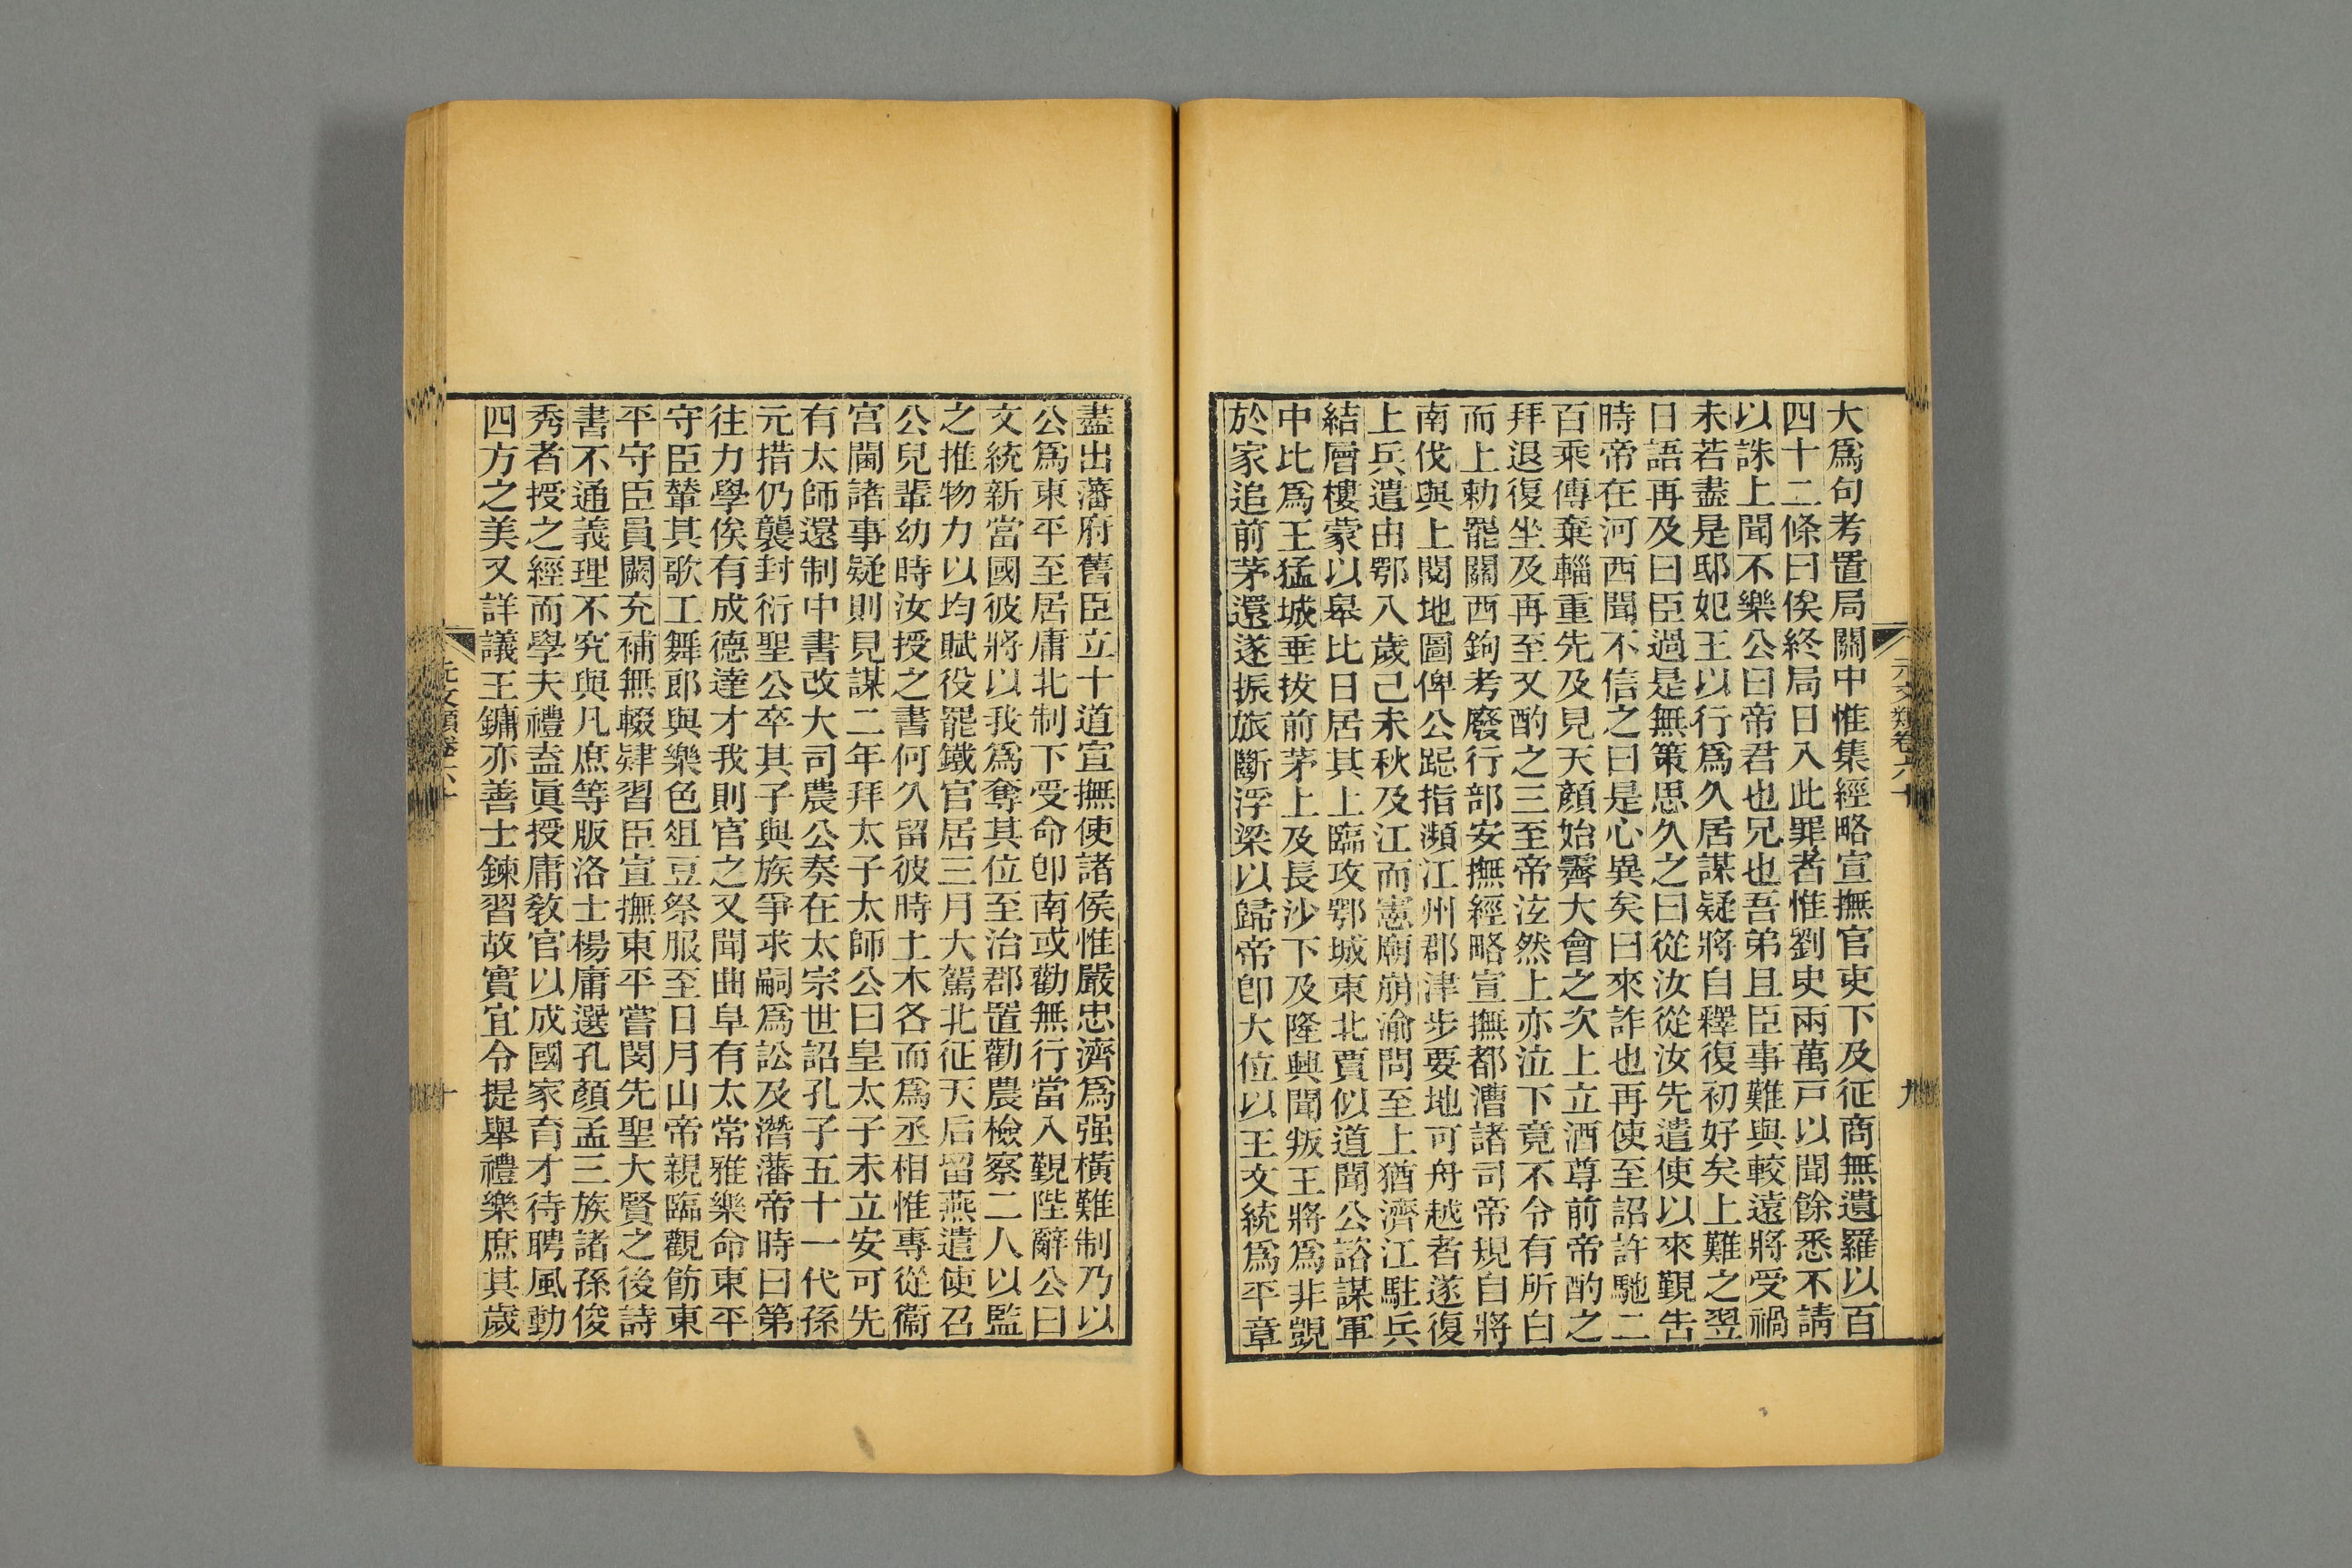 大爲句考置局關中惟集經略宣撫官吏下及征商無遺羅以百
四十二條曰俟終局日入此罪者惟劉史兩萬戸以聞餘悉不請
以誅上聞不樂公曰帝君也兄也吾弟且臣事難與較遠將受禍
未若盡是邸妃王以行爲久居謀疑將自釋復初好矣上難之翌
日語再及曰臣過是無策思久之曰從汝從汝先遣使以來覲告
時帝在河西聞不信之曰是心異矣曰來詐也再使至詔許馳二
百乘傳棄輜重先及見天顔始霽大會之次上立酒尊前帝酌之
拜退復坐及再至又酌之三至帝泫然上亦泣下竟不令有所白
而上勅罷關西鉤考廢行部安撫經略宣撫都漕諸司帝規自將
南伐與上閱地圖俾公跽指瀕江州郡津步要地可舟越者遂復
上兵遣由鄂入歲己未秋及江而憲廟崩渝問至上猶濟江駐兵
結層樓蒙以皋比日居其上臨攻鄂城東北賈似道聞公諮謀軍
中比爲王猛城垂拔前茅上及長沙下及隆興聞叛王將爲非覬
於家追前茅還遂振旅斷浮梁以歸帝卽大位以王文統爲平章
元文類卷六十
九
盡出藩府舊臣立十道宣撫使諸侯惟嚴忠濟爲强橫難制乃以
公爲東平至居庸北制下受命卽南或勸無行當入覲陛辭公曰
文統新當國彼將以我爲奪其位至治郡置勸農檢察二人以監
之推物力以均賦役罷鐵官居三月大駕北征天后留燕遣使召
公兒輩幼時汝授之書何久留彼時土木各而爲丞相惟專從衞
宫闈諸事疑則見謀二年拜太子太師公曰皇太子未立安可先
有太師還制中書改大司農公奏在太宗世詔孔子五十一代孫
元措仍襲封衍聖公卒其子與族爭求嗣爲訟及潛藩帝時曰第
往力學俟有成德達才我則官之又聞曲阜有太常雅樂命東平
守臣輦其歌工舞郎與樂色俎豆祭服至日月山帝親臨觀飭東
平守臣員闕充補無輟肄習臣宣撫東平嘗閔先聖大賢之後詩
書不通義理不究與凡庶等版洛士楊庸選孔顔孟三族諸孫俊
秀者授之經而學夫禮盍眞授庸敎官以成國家育才待聘風動
四方之美又詳議王鏞亦善士鍊習故實宜令提舉禮樂庶其歲
元文類卷六十
十